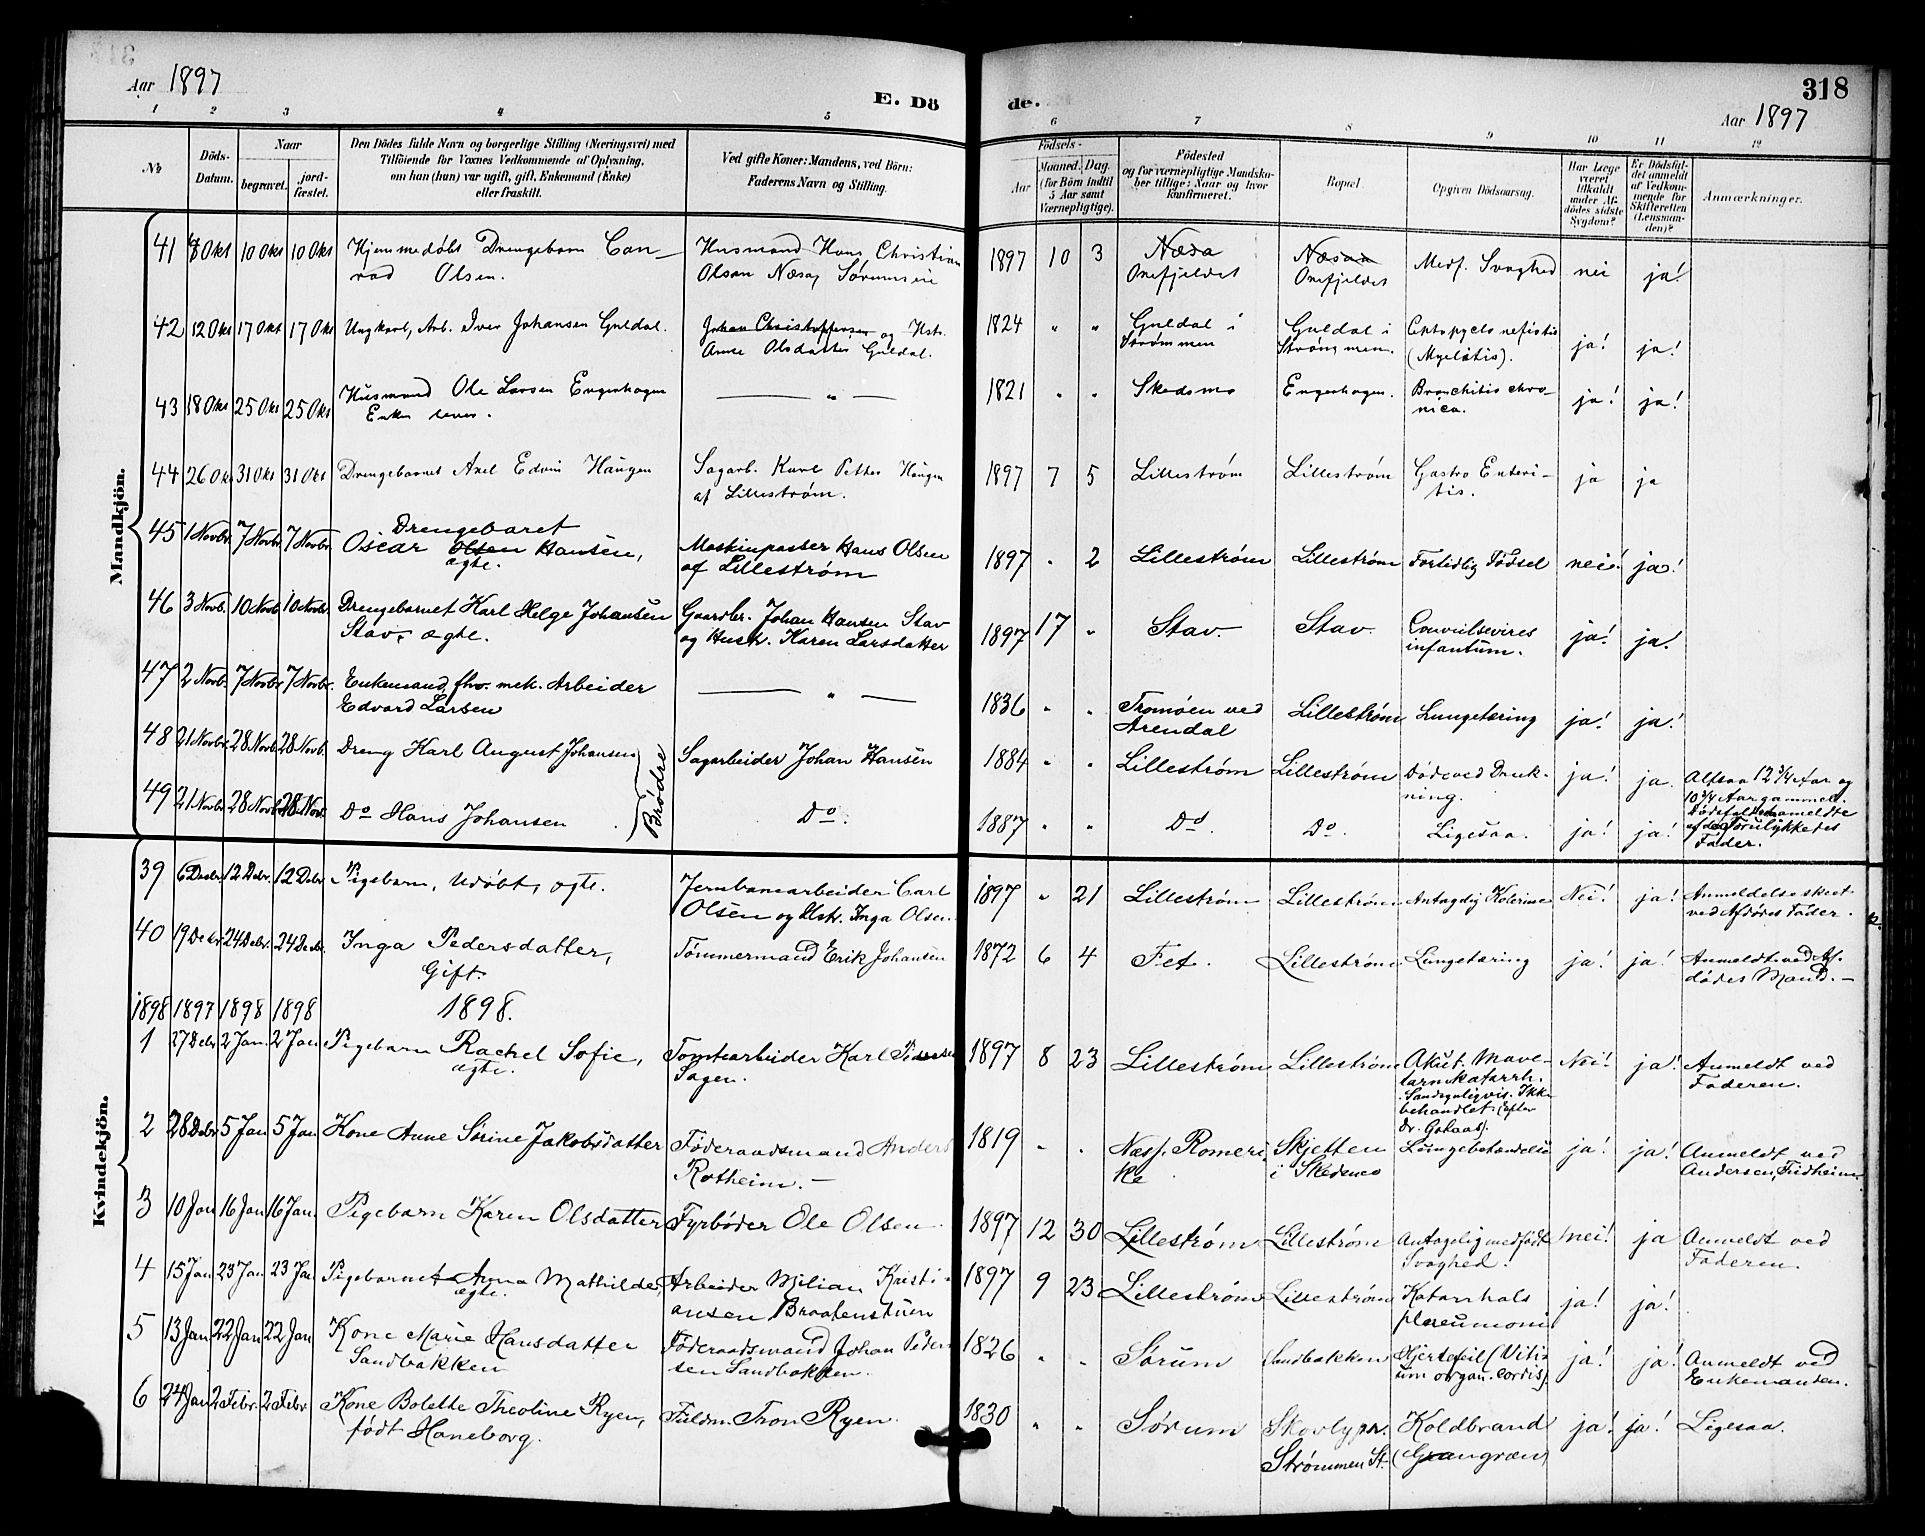 Aar 1897
E. Dö
de.
318
Aar 1897
1 2 3 4 5 6 7 8 9 10 11 12
No
Döds-Datum.
Naar
begravet.
jord-fæstet.
Den Dödes fulde Navn og borgerlige Stilling (Næringsvei) med
Tilföiende for Voxnes Vedkommende af Oplysning,
om han (hun) var ugift, gift, Enkemand (Enke)
eller fraskilt.
Ved gifte Koner: Mandens, ved Börn:
Faderens Navn og Stilling.
Födsels-
Aar
Maaned. Dag.
(for Börn indtil
5 Aar samt
Værnepligtige).
Födested
og for værnepligtige Mandska-
ber tillige: Naar og hvor
konfirmeret.
Bopæl.
Opgiven Dödsaarsag.
Har Læge
været
tilkaldt
under Af-
dödes sidste
Sygdom?
Er Dödsfal-
det anmeldt
af Vedkom-
mende for
Skifteretten
(Lensman-
den)?
Anmærkninger.
Mandkjön.
41 8 Okt 10 Okt 10 Okt Hjemmedøbt Drengebarn Con- Husmand Hans Christian 1897 10 3 Næsa Næsaa Medf. Svaghed nei ja!
rad Olsen. Olsen Næsa, Sørumseie Onefjeldet Onefjeldet
42 12 Okt 17 Okt 17 Okt Ungkarl, Arb. Iver Johansen Guldal. Johan Christoffersen og Hstr. 1824 " " Guldal i Guldal i ja! ja!
Anne Olsdatter Guldal. Strømmen Strømmen. (Myelitis).
43 18 Okt 25 Okt 25 Okt Husmand Ole Larsen Engerhagen — " — 1821 " " Skedsmo Engerhagen. Bronchitis chro- ja! ja!
Enke lever. nica.
44 26 Okt 31 Okt 31 Okt Drengebarnet Axel Edvin Haugen Sagarb. Karl Petter Haugen 1897 7 5 Lillestrøm Lillestrøm Gastro Enteri- ja ja
af Lillestrøm. tis.
45 1 Novbr. 7 Novbr. 7 Novbr. Drengebaret
Oscar Olsen Hansen, Maskinpasser Hans Olsen 1897 " 2 Lillestrøm Lillestrøm Fortidlig Fødsel nei! ja!
ægte. af Lillestrøm
46 3 Novb. 10 Novb. 10 Novbr. Drengebarnet Karl Helge Johansen Gaardbr. Johan Hansen Stav 1897 17 " Stav. Stav. ja! ja!
Stav, ægte. og Hustr. Karen Larsdatter infantum.
47 2 Novb. 7 Novbr 7 Novbr. Enkemand, fhv. mek. Arbeider — " — 1836 " " Tromøen ved Lillestrøm Lungetæring ja! ja!
Edvard Larsen Arendal
48 21 Novbr. 28 Novb. 28 Novb. Dreng Karl August Johansen Sagarbeider Johan Hansen 1884 " " Lillestrøm Lillestrøm Døde ved Druk- ja! ja Altsaa 12 3/4 Aar og
ning. 10 3/4 Aar gammel.
Brødre
49 21 Novbr. 28 Novb. 28 Nov. Do Hans Johansen Do. 1887 " " Do. Do. Ligesaa. ja! ja! Dødsfaldet anmeldte
af de Forulykkedes
Fader.
Kvindekjön.
39 6 Decbr. 12 Debr. 12 Debr. Pigebarn, Udøbt, ægte. Jernbanearbeider Carl 1897 " 21 Lillestrøm Lillestrøm Antagelig Kolerine Nei! ja! Anmeldelse skeet
Olsen og Hstr. Inga Olsen. ved Afdødes Fader.
40 19 Debr 24 Debr. 24 Debr. Inga Pedersdatter, Tømmermand Erik Johansen 1872 6 4 Fet. Lillestrøm Lungetæring ja! ja! Anmeldt ved Af-
Gift. dødes Mand. —
1898 1897 1898 1898 1898.
1 27 Debr 2 Jan. 2 Jan Pigebarn Rachel Sofie, Tomtearbeider Karl Pedersen 1897 8 23 Lillestrøm Lillestrøm Akut. Mave- Nei! ja! Anmeldt ved
ægte. Sagen. tarmkatarrh. Faderen.
Sandsynligvis. Ikke
behandlet (efter
Dr. ).
2 28 Debr 5 Jan 5 Jan Kone Anne Sørine Jakobsdatter Føderaadsmand Anders 1819 " " Næs, Romeri- Skjetten ja! ja! Anmeldt ved
Rotheim. — ke i Skedsmo Andersen, Fridheim
3 10 Jan 16 Jan 16 Jan. Pigebarn Karen Olsdatter Fyrbøder Ole Olsen. 1897 12 30 Lillestrøm Lillestrøm Antagelig medfødt nei! ja Anmeldt ved
Svaghed. Faderen.
4 15 Jan 23 Jan 23 Jan Pigebarnet Anna Mathilde, Arbeider Milian Kristi- 1897 9 23 Lillestrøm Lillestrøm Katarrhals ja! ja!
ægte. ansen Braatenstuen pneumoni
5 13 Jan 22 Jan 22 Jan Kone Marie Hansdatter Føderaadsmand Johan Peder- 1826 " " Sørum Sandbakken Hjertefeil (Viti- ja! ja! Anmeldt ved
Sandbakken sen Sandbakken. um organ. cordis). Enkemanden.
6 24 Jan 2 Febr. 2 Febr Kone Bolette Theoline Ryen, Fuldm. Tron Ryen. 1830 " " Sørum Skovly pr. Koldbrand ja! ja! Ligesaa.
født Haneborg. Strømmen St. (Gangræn)